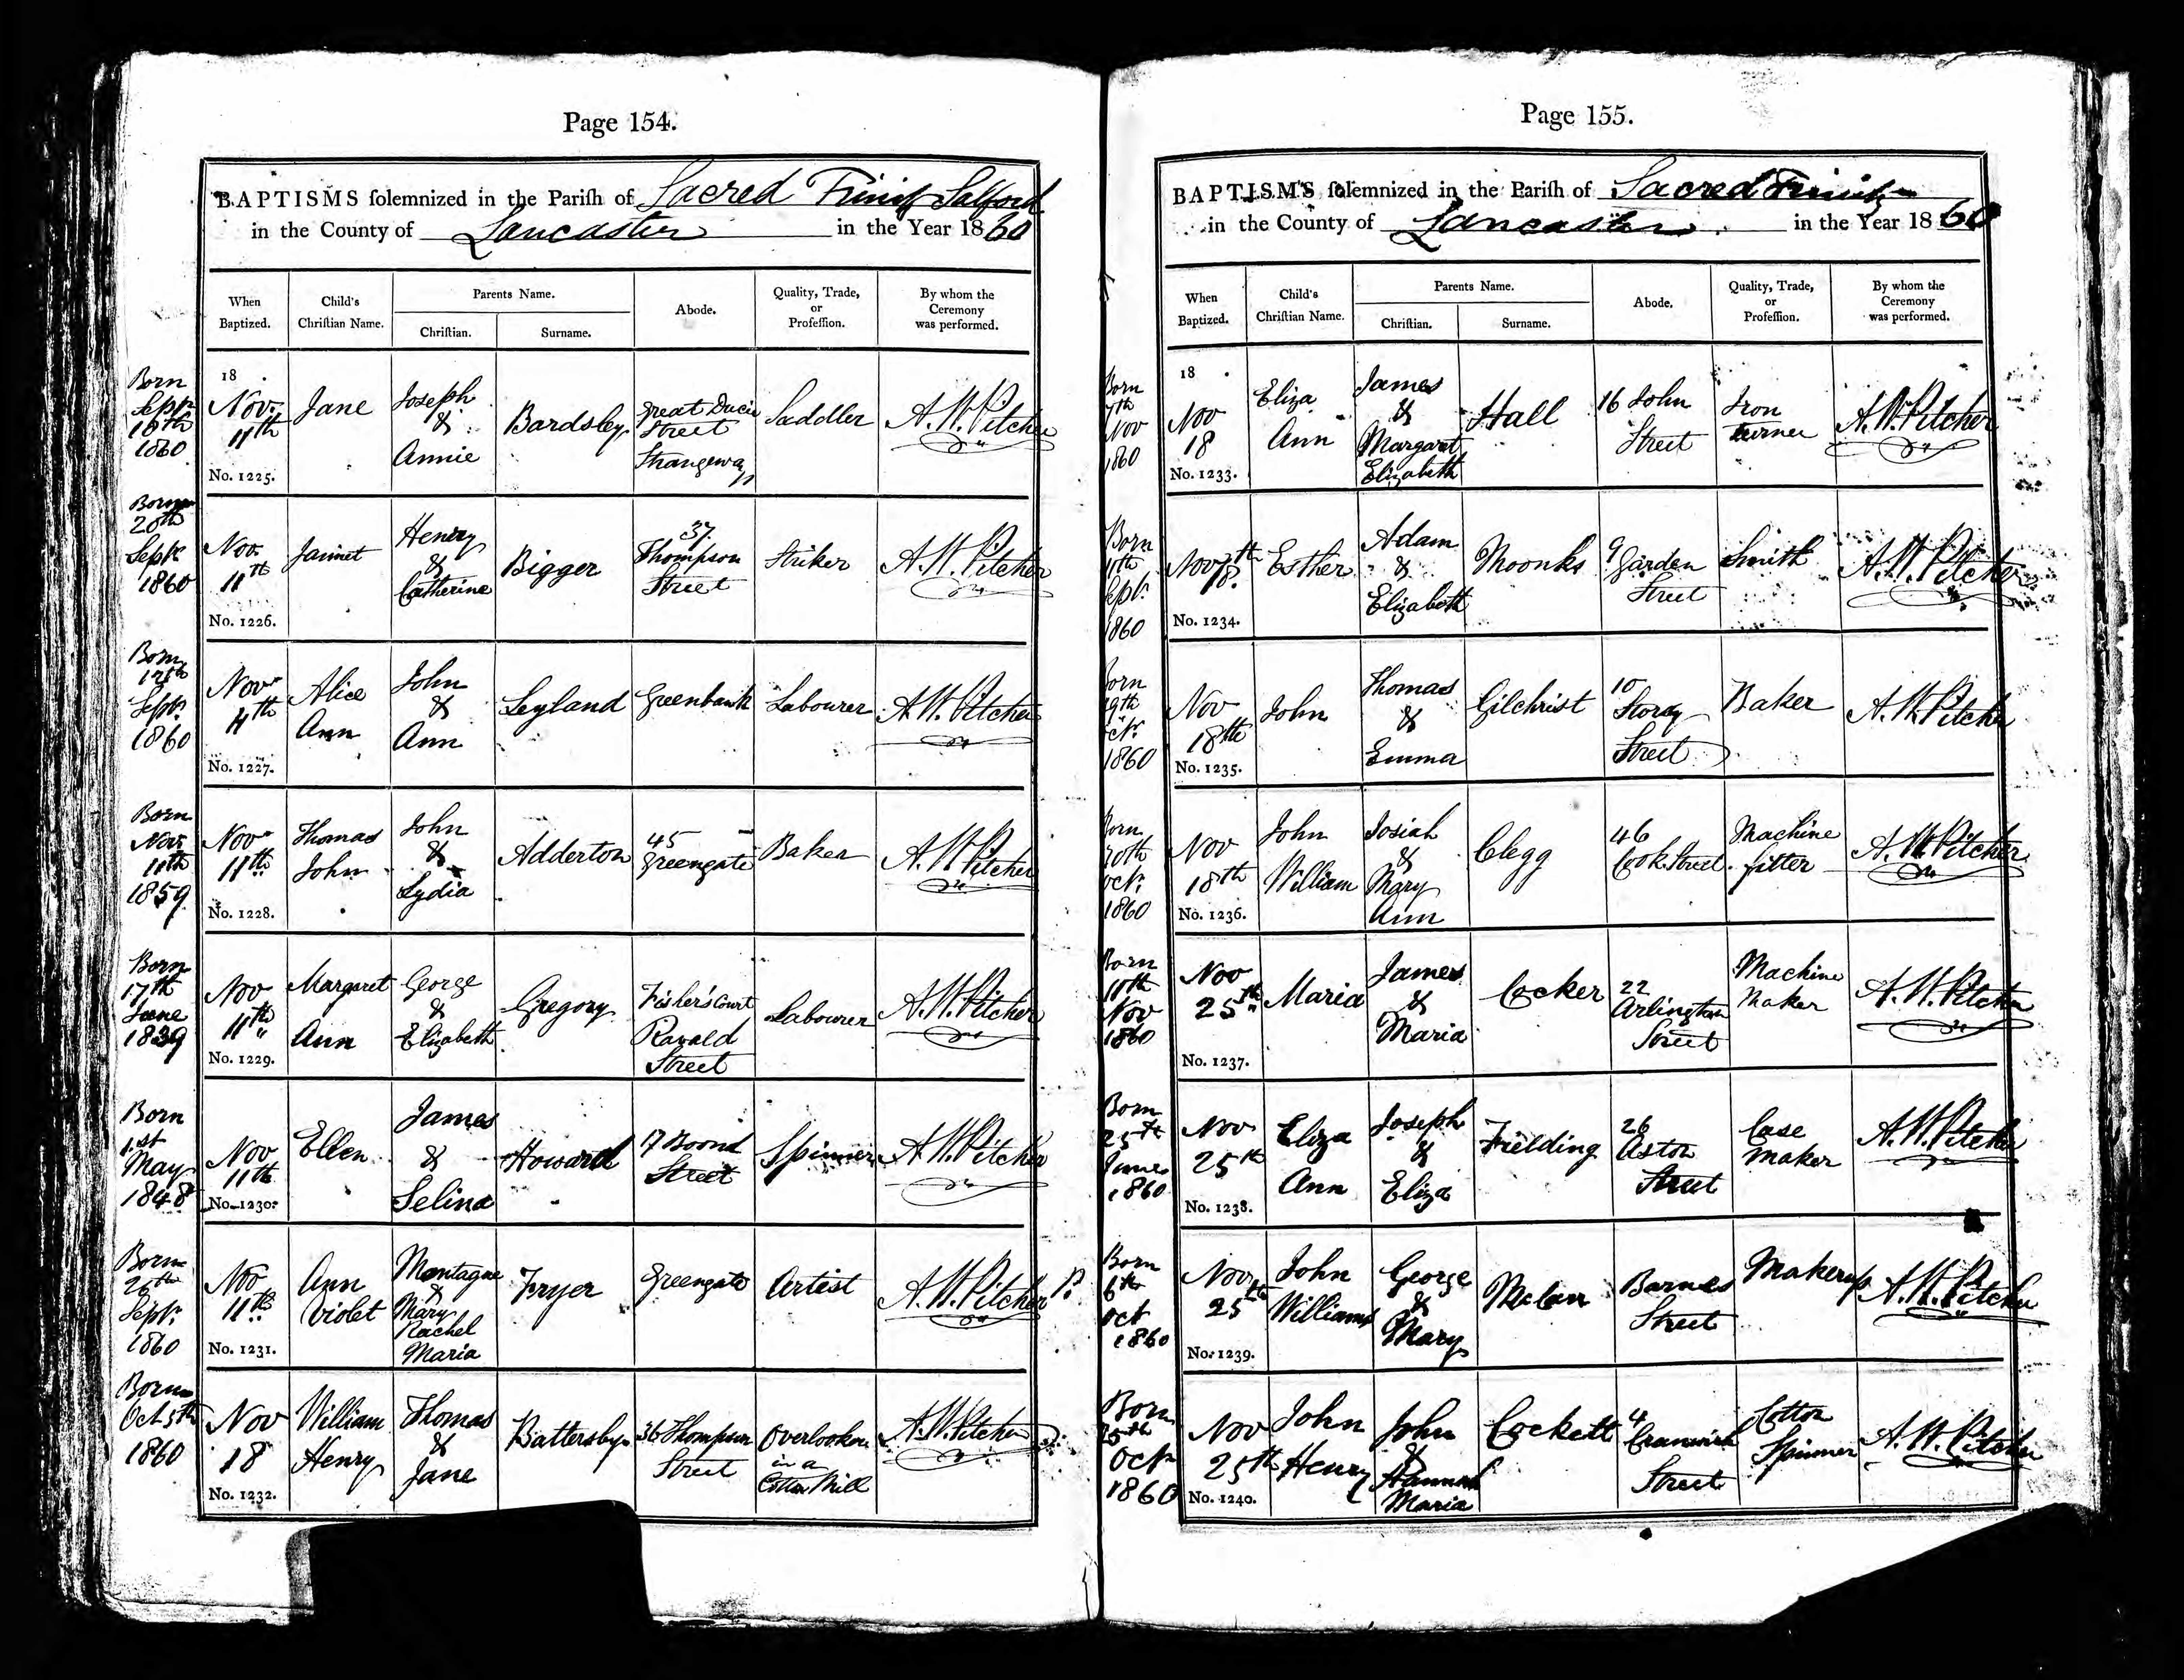 Page 154.
BAPTISMS solemnized in the Parish of Sacred Trinity Salford
in the County of Lancaster in the Year 1860
When Baptized. Child's Christian Name. Parents Name. Abode. Quality, Trade, or Profession. By whom the Ceremony was performed.
Christian. Surname.
Born Sept 16th 1860
18 Nov. 11th Jane Joseph & Annie Bardsley Great Ducie Street Strangeways Saddler A.W. Pitcher
No. 1225.
Born 20th Sept. 1860
Nov. 11th Henry & Catherine Bigger 37. Thompson Street Striker A.W. Pitcher
No. 1226.
Born 12th Sept. 1860
Nov 11th Alice Ann John & Ann Leyland Greenbank Labourer A.W. Pitcher
No. 1227.
Born Nov. 11th 1859
Nov 11th Thomas John John & Lydia Adderton 45 Greengate Baker A.W. Pitcher
No. 1228.
Born 17th June 1839
Nov 11th Margaret Ann George & Elizabeth Gregory Court Ravald Street Labourer A.W. Pitcher
No. 1229.
Born 1st May 1848
Nov 11th Ellen James & Selina Howard 17 Boond Street Spinner A.W. Pitcher
No. 1230.
Born 26th Sept. 1860
Nov 11th Ann Violet Montague & Mary Rachel Maria Fryer Greengate Artist A.W. Pitcher P.
No. 1231.
Born Oct 5th 1860
Nov 18 William Henry Thomas & Jane Battersby 36 Thompson Street Overlooker in a Cotton Mill A.W. Pitcher
No. 1232.
Page 155.
BAPTISMS solemnized in the Parish of Sacred Trinity
in the County of Lancaster in the Year 1860
When Baptized. Child's Christian Name. Parents Name. Abode. Quality, Trade, or Profession. By whom the Ceremony was performed.
Christian. Surname.
Born 7th Nov 1860
18 Nov 18 Eliza Ann James & Margaret Elizabeth Hall 16 John Street Iron turner A.W. Pitcher
No. 1233.
Born 11th Sept. 1860
Nov 18th Esther Adam & Elizabeth Moonks 9 Garden Street Smith A.W. Pitcher
No. 1234.
Born 19th Oct. 1860
Nov 18th John Thomas & Emma Gilchrist 10 Storey Street Baker A.W. Pitcher
No. 1235.
Born Oct. 1860
Nov 18th John William Josiah & Mary Ann Clegg 46 Cook Street Machine fitter A.W. Pitcher
No. 1236.
Born 11th Nov 1860
Nov 25th Maria James & Maria Cocker 22 Arlington Street Machine Maker A.W. Pitcher
No. 1237.
Born 25th 1860
Nov 25th Eliza Ann Joseph & Eliza Fielding 26 Aston Street Case maker A.W. Pitcher
No. 1238.
Born 6th Oct 1860
Nov 25th John Williams George & Mary Barnes Street Makerup A.W. Pitcher
No. 1239.
Born 25th Oct 1860
Nov 25th John Henry John & Hannah Maria Cockett 4 Street Cotton Spinner A.W. Pitcher
No. 1240.